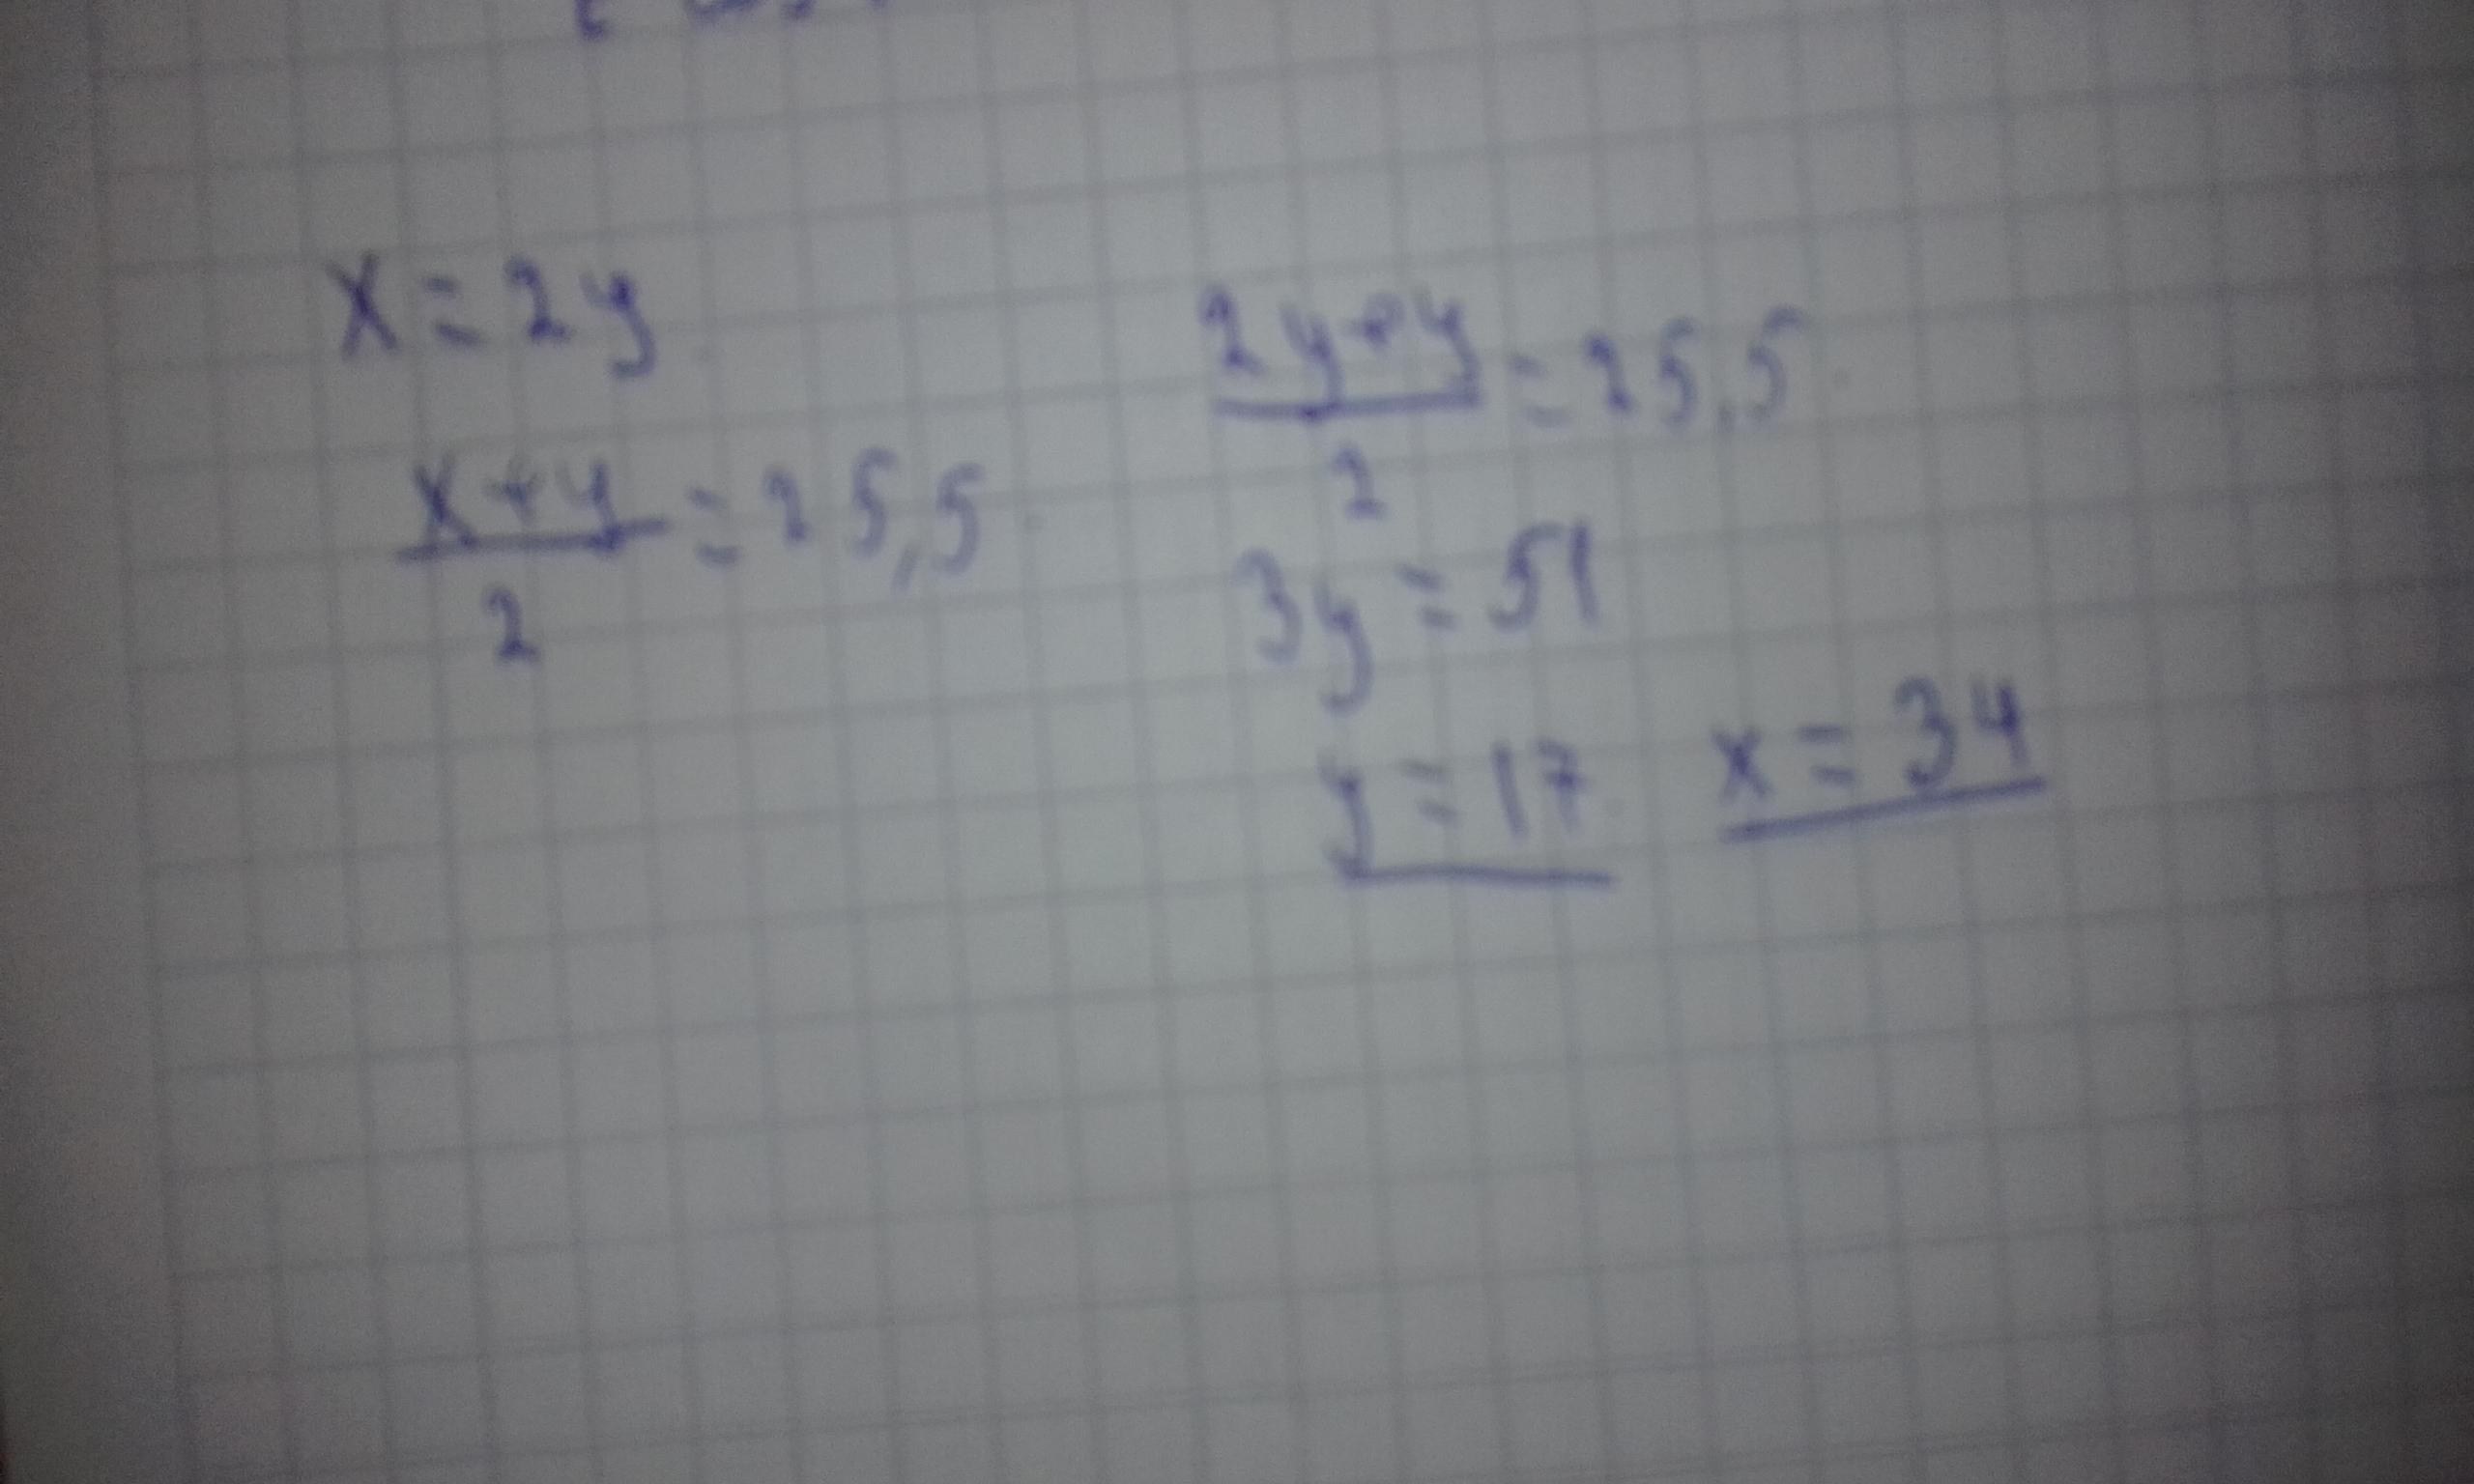 x = 2y
x+y/2 = 25,5
2y+y/2 = 25,5
3y = 51
y = 17 x = 34